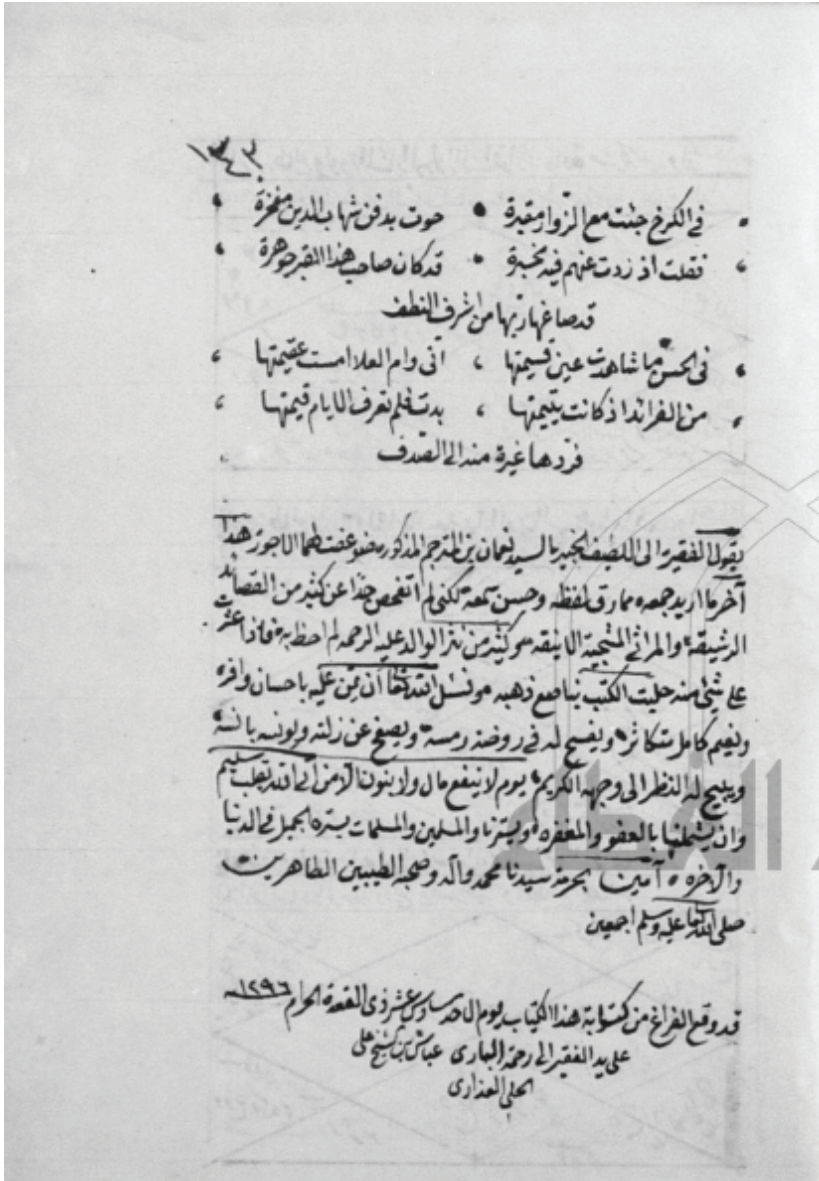 ١٣٤٣
في الكرخ جئت مع الزوار مقبرة حوت بدفن شهاب الدين مفخرة
فقلت اذ زدت عنهم فيه تخبرة قد كان صاحب هذا القبر جوهرة
قد صاغها ربها من اشرف النطف
في الحسن ما شاهدت عين قسيمتها انى وام العلا امست عقيمتها
من الفرائد اذ كانت يتيمتها بدت فلم تعرف الايام قيمتها
فردها غيرة منه الى الصدف
يقول الفقير الى اللطيف الخبير السيد نعمان بن المترجم المذكور هذا
آخر ما اريد جمعه مما رق لفظه وحسن سمعه لكني لم اتفحص جدا عن كثير من القصائد
الرشيقة والمراثي المشجية الانيقة وكثير من نثر الوالد عليه الرحمه لم احظ به فاذا عثرت
على شيئ منه حليت الكتب بناصع ذهبه ونسئل الله تعالى ان يمن عليه باحسان وافره
ونعيم كامل متكاثره ويفسح له في روضة رمسه ويصفح عن زلته ويونسه بانسه
ويبيح له النظر الى وجهه الكريم يوم لا ينفع مال ولا بنون الا من اتى الله بقلب سليم
وان يشملنا بالعفو والمغفره ويسترنا والمسلمين والمسلمات بستره الجميل في الدنيا
والآخره آمين بحرمة سيدنا محمد وآله وصحبه الطيبين الطاهرين
صلى الله تعالى عليه وسلم اجمعين
قد وقع الفراغ من كتوابة هذا الكتاب يوم الاحد سادس عشر ذي القعدة الحرام ١٢٩٦
على يد الفقير الى رحمة الباري عباس بن الشيخ علي
الحلي العذاري
الغطاء